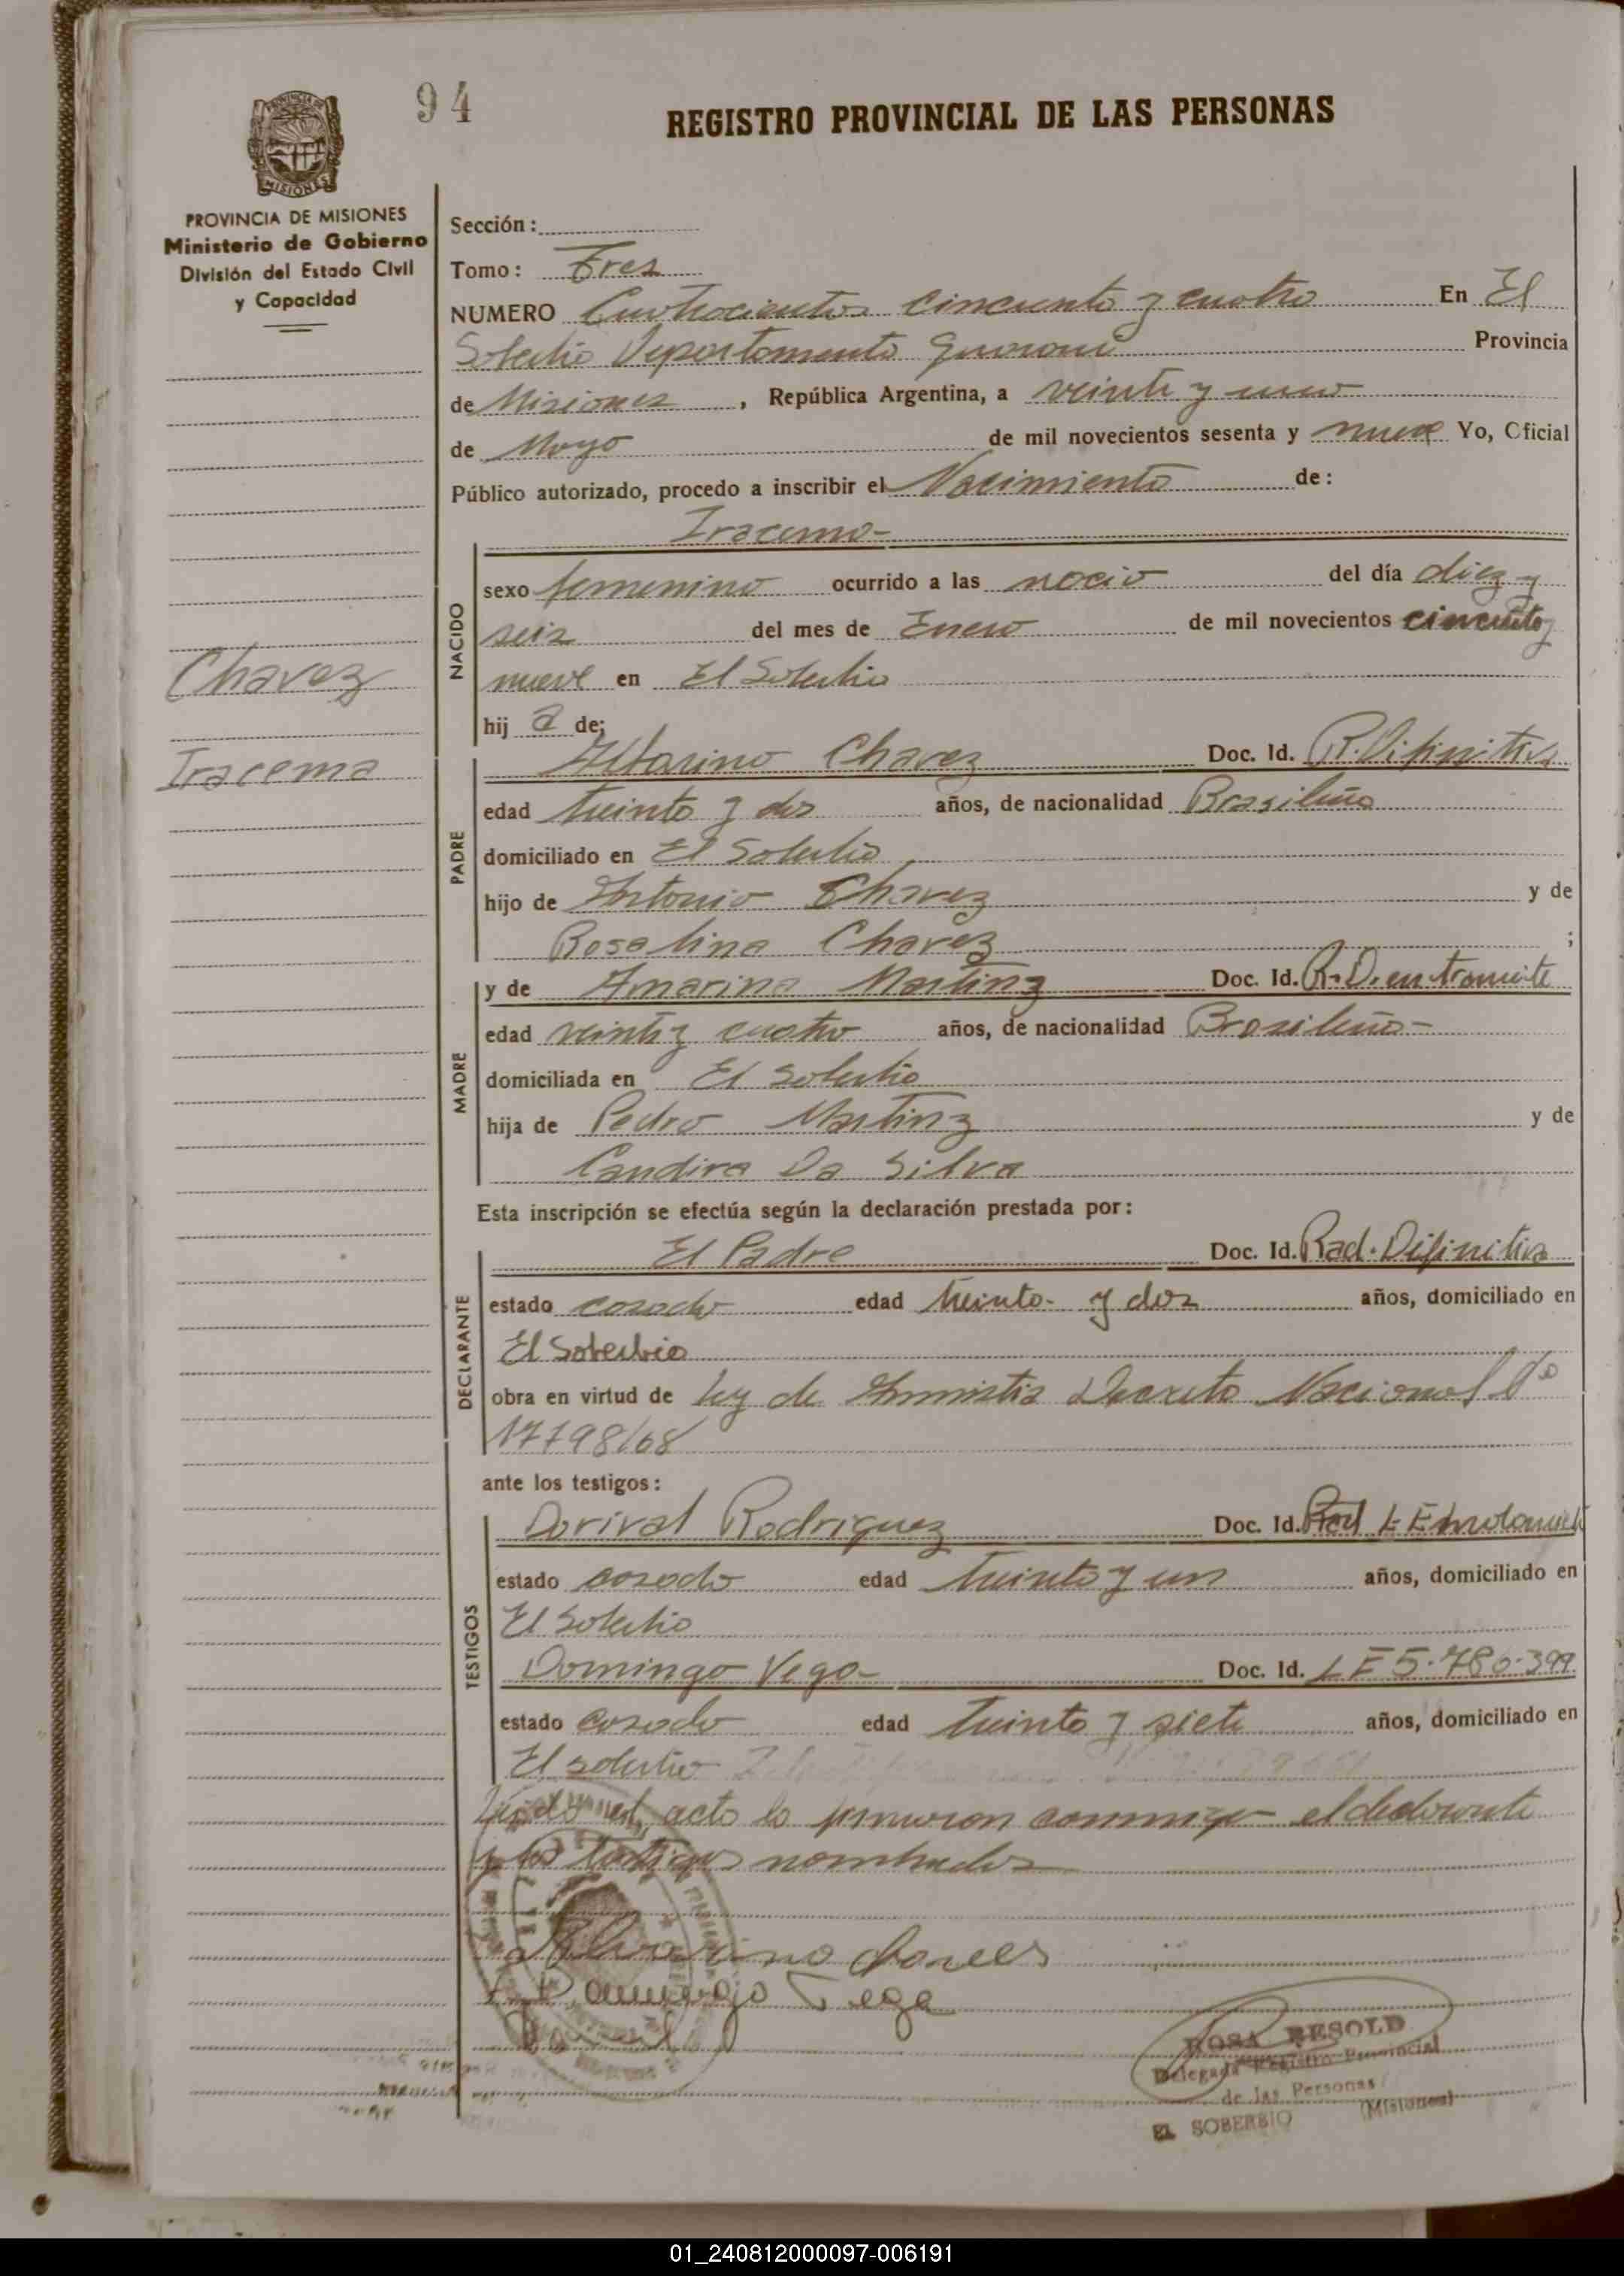 94
REGISTRO PROVINCIAL DE LAS PERSONAS
PROVINCIA DE MISIONES
Ministerio de Gobierno
División del Estado Civil
y Capacidad
Sección:
Tomo: Tres
NUMERO Cuatrocientos cincuenta y cuatro En El
Soberbio Departamento Guarani Provincia
de Misiones, República Argentina, a veinte y uno
de Mayo de mil novecientos sesenta y nueve Yo, Oficial
Público autorizado, procedo a inscribir el Nacimiento de:
Iracema-
NACIDO
sexo femenino ocurrido a las nació del día diez y
seis del mes de Enero de mil novecientos cincuenta y
nueve en El Soberbio
hij a de;
Chavez
Iracema
PADRE
Chavez Doc. Id. R. Difinitiva
edad treinta y dos años, de nacionalidad Brasileña
domiciliado en El Soberbio
hijo de Antonio Chavez y de
Rosalina Chavez ;
MADRE
y de Amarina Martinz Doc. Id. R. D. en tramite
edad veinte y cuatro años, de nacionalidad Brasileña-
domiciliada en El Soberbio
hija de Pedro Martinz y de
Candira Da Silva
Esta inscripción se efectúa según la declaración prestada por:
DECLARANTE
El Padre Doc. Id. Rad. Difinitiva
estado casado edad treinta y dos años, domiciliado en
El Soberbio
obra en virtud de Ley de Amnistia Decreto Nacional Nº
17798/68
ante los testigos:
TESTIGOS
Dorival Rodriguez Doc. Id. L E
estado casado edad treinta y un años, domiciliado en
El Soberbio
Domingo Vega- Doc. Id. LE 5.780.399
estado casado edad treinta y siete años, domiciliado en
El Soberbio
Leida el acta la firmaron conmigo el declarante
y los testigos nombrados
ROSA RESOLD
Delegada Registro Provincial
de las Personas
EL SOBERBIO (Misiones)
01_240812000097-006191